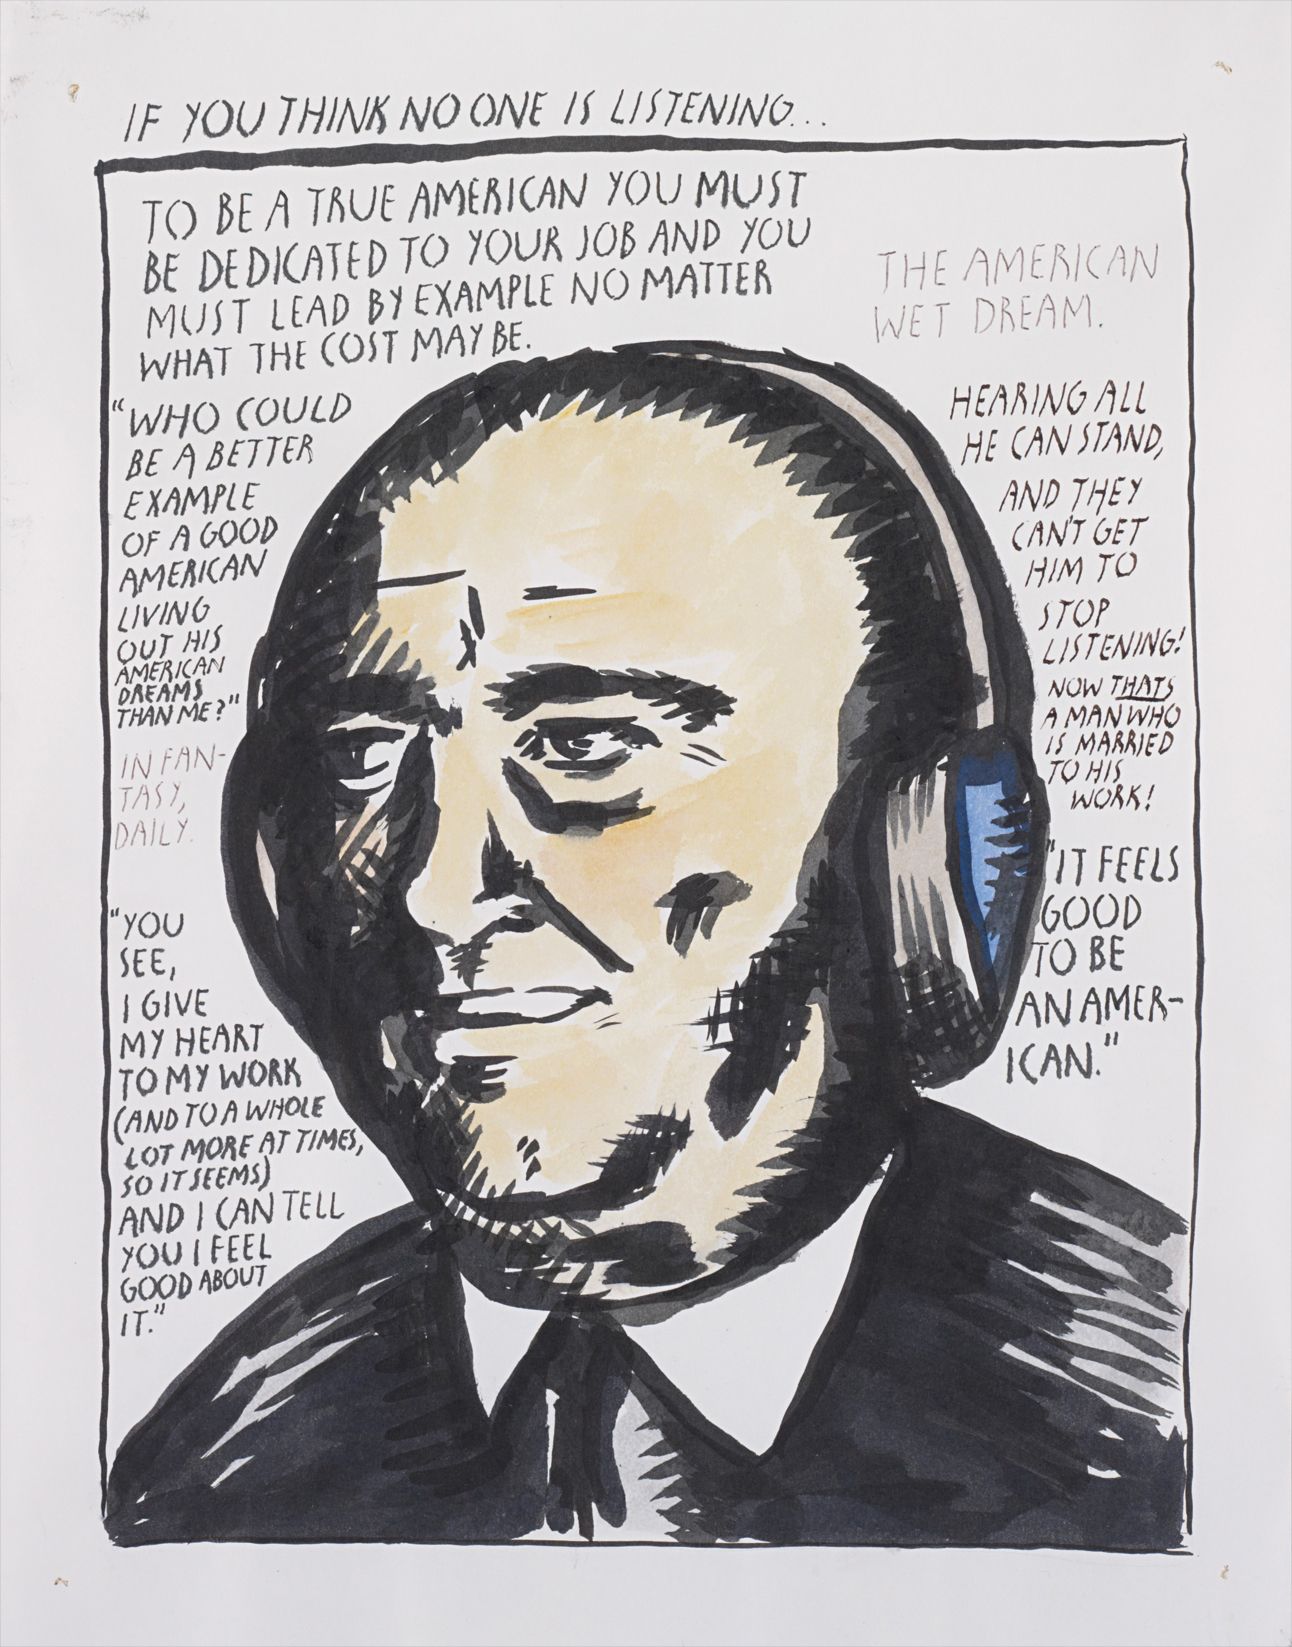 IF YOU THINK NO ONE IS LISTENING...
TO BE A TRUE AMERICAN YOU MUST
BE DEDICATED TO YOUR JOB AND YOU
MUST LEAD BY EXAMPLE NO MATTER
WHAT THE COST MAY BE.
"WHO COULD
BE A BETTER
EXAMPLE
OF A GOOD
AMERICAN
LIVING
OUT HIS
AMERICAN
DREAMS
THAN ME?"
IN FAN-
TASY,
DAILY.
"YOU
SEE,
I GIVE
MY HEART
TO MY WORK
(AND TO A WHOLE
LOT MORE AT TIMES,
SO IT SEEMS)
AND I CAN TELL
YOU I FEEL
GOOD ABOUT
IT."
THE AMERICAN
WET DREAM.
HEARING ALL
HE CAN STAND,
AND THEY
CAN'T GET
HIM TO
STOP
LISTENING!
NOW THATS
A MAN WHO
IS MARRIED
TO HIS
WORK!
"IT FEELS
GOOD
TO BE
AN AMER-
ICAN."